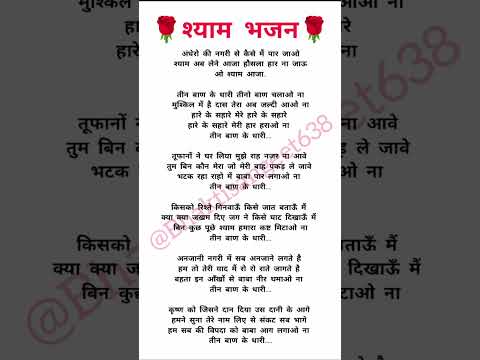 🌹श्याम भजन🌹
अंधेरो की नगरी से कैसे मैं पार जाओ
श्याम अब लेने आजा हौसला हार ना जाऊ
ओ श्याम आजा.
तीन बाण के धारी तीनो बाण चलाओ ना
मुश्किल में है दास तेरा अब जल्दी आओ ना
हारे के सहारे मेरे हारे के सहारे
हारे के सहारे मेरी हार हराओ ना
तीन बाण के धारी...
तूफानों ने घर लिया मुझे राह नजर ना आवे
तुम बिन कौन मेरा जो मेरी बाह पकड़ ले जावे
भटक रहा राहो में बाबा पार लगाओ ना
तीन बाण के धारी...
किसको रिश्ते गिनवाऊँ किसे जात बताऊँ मैं
क्या क्या जखम दिए जग ने किसे घाट दिखाऊँ मैं
बिन कुछ पूछे श्याम हमारा कष्ट मिटाओ ना
तीन बाण के धारी...
अनजानी नगरी में सब अनजाने लगते है
हम तो तेरी याद में रो रो राते जागते है
बहता इन आँखों से बाबा नीर थमाओ ना
तीन बाण के धारी...
कृष्ण को जिसने दान दिया उस दानी के आगे
हमने सुना तेरे नाम लिए से संकट सब भागे
हम सब की विपदा को बाबा आग लगाओ ना
तीन बाण के धारी...